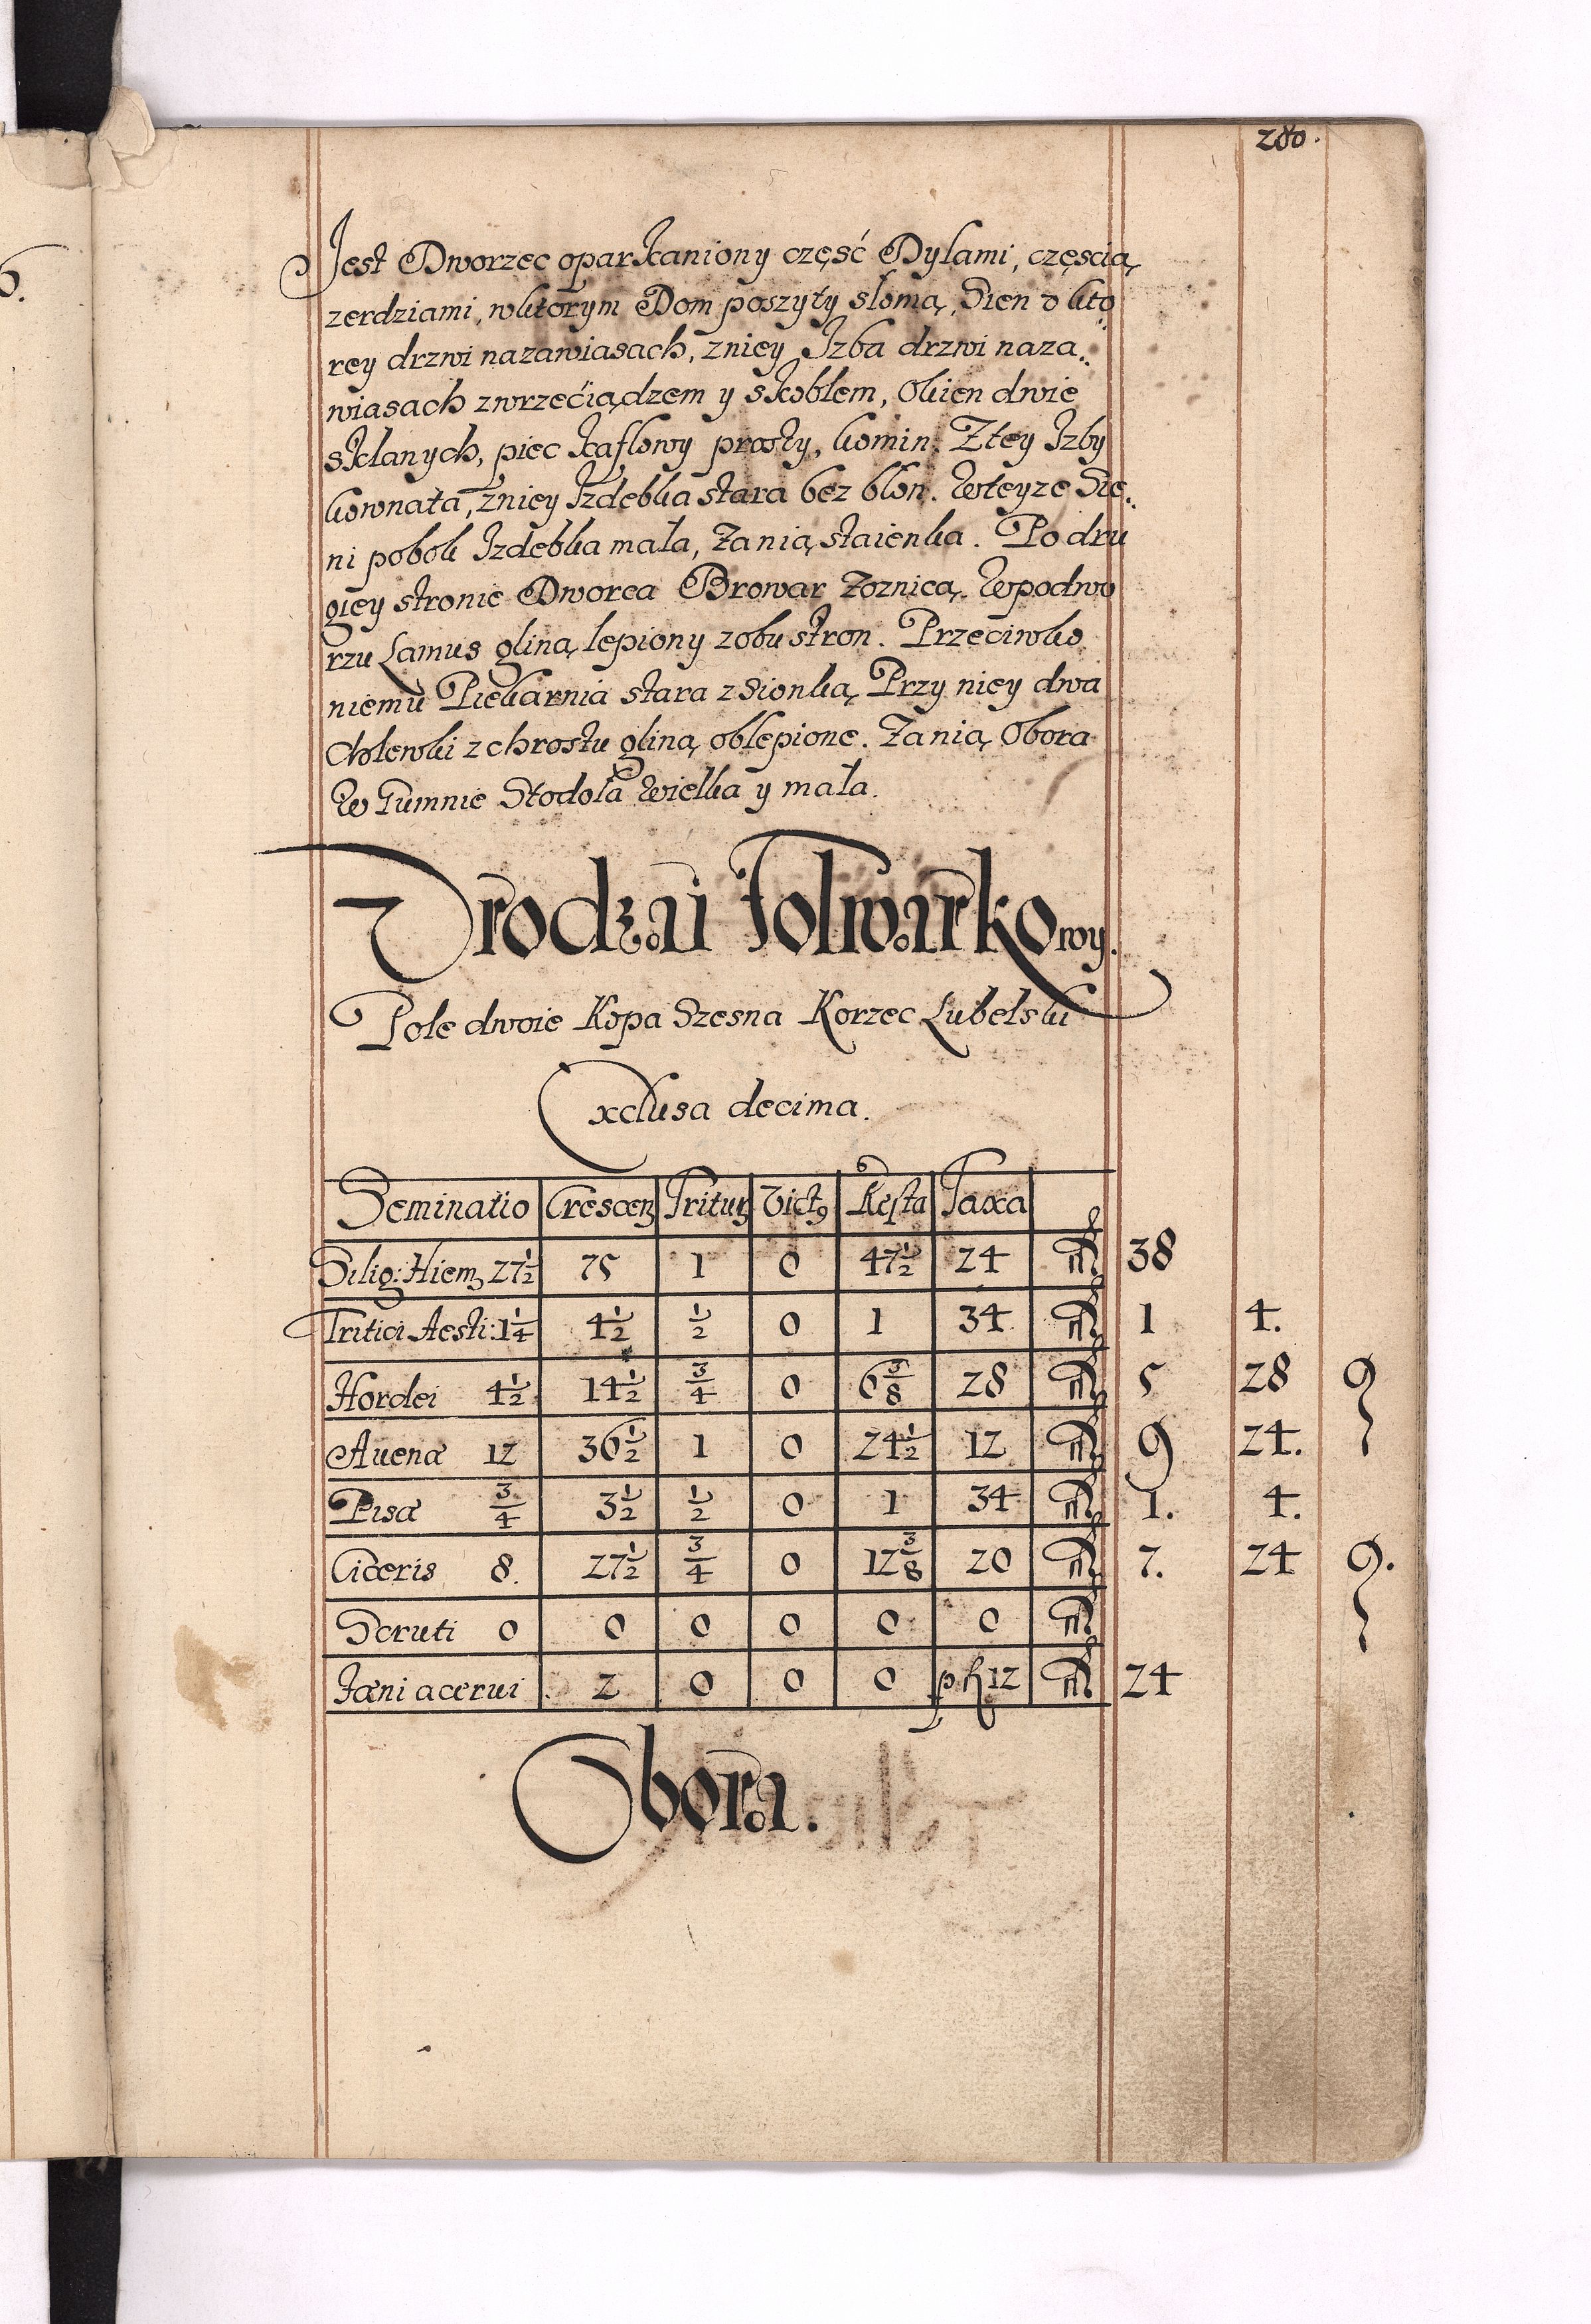 280.
6.
Jest Dworzec oparkaniony część Dylami, częscią
zerdziami, wktorym Dom poszyty słomą, Sien v kto
rey drzwi nazawiasach, zniey Izba drzwi naza„
wiasach zwrzeciądzem y skoblem, Okien dwie
sklanych, piec kaflowy prosty, komin. Ztey Izby
komnata, zniey Izdebka stara bez błon. Wteyze Sie„
ni pobok Izdebka mała, Zanią staienka. Po dru
giey stronie Dworca Browar Zoznicą. Wpodwo
rzu Lamus gliną lepiony zobu stron. Przeciwko
niemu Piekarnia stara zsionką, Przy niey dwa
Chlewki zchrostu gliną oblepione. Zanią Obora
W Gumnie Stodoła Wielka y mała.
Vrodzai Folwarkowy.
Pole dwoie Kopa Szesna Korzec Lubelski
Exclusa decima.
Seminatio Crescenȝ Trituȝ Vict9 Resta Taxa
Silig: Hiemȝ 27½ 75 1 0 47½ 24 fl 38
Tritici Aesti: 1¼ 4½ ½ 0 1 34 fl 1 4.
Hordei 4½ 14½ ¾ 0 6⅜ 28 fl 5 28 9
Auenæ 12 36½ 1 0 24½ 12 fl 9 24.
Pisæ ¾ 3½ ½ 0 1 34 fl 1. 4.
Ciceris 8. 27½ ¾ 0 12⅜ 20 fl 7. 24 9.
Scruti 0 0 0 0 0 0 fl
Fæni acerui 2 0 0 0 p fl 12 fl 24
Obora.